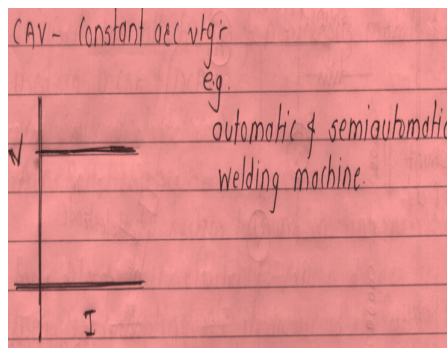 CAV - Constant arc vtgr
e.g.
automatic & semiautomatic
welding machine.
V
I